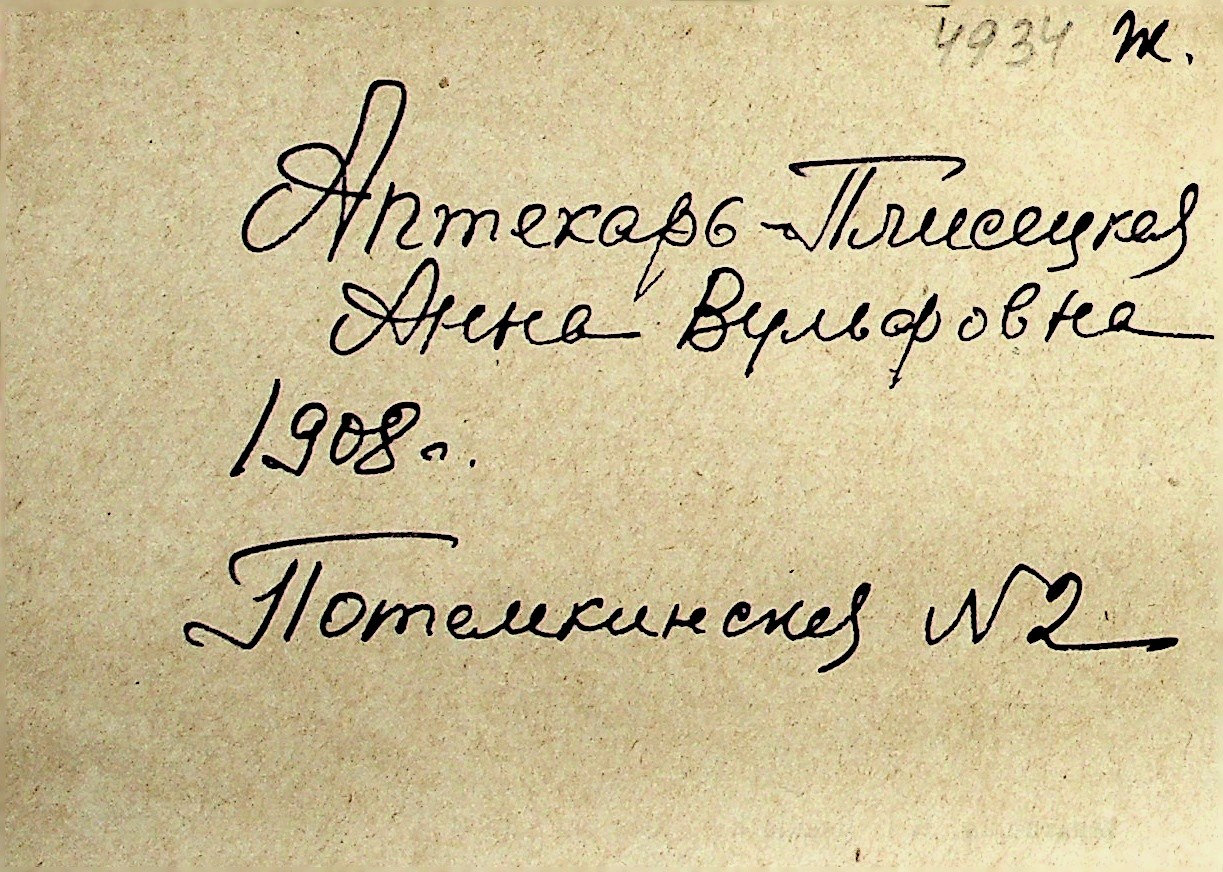 4934 ж.
Аптекарь-Плисецкая
Анна Вульфовна
1908 г.
Потемкинская N 2